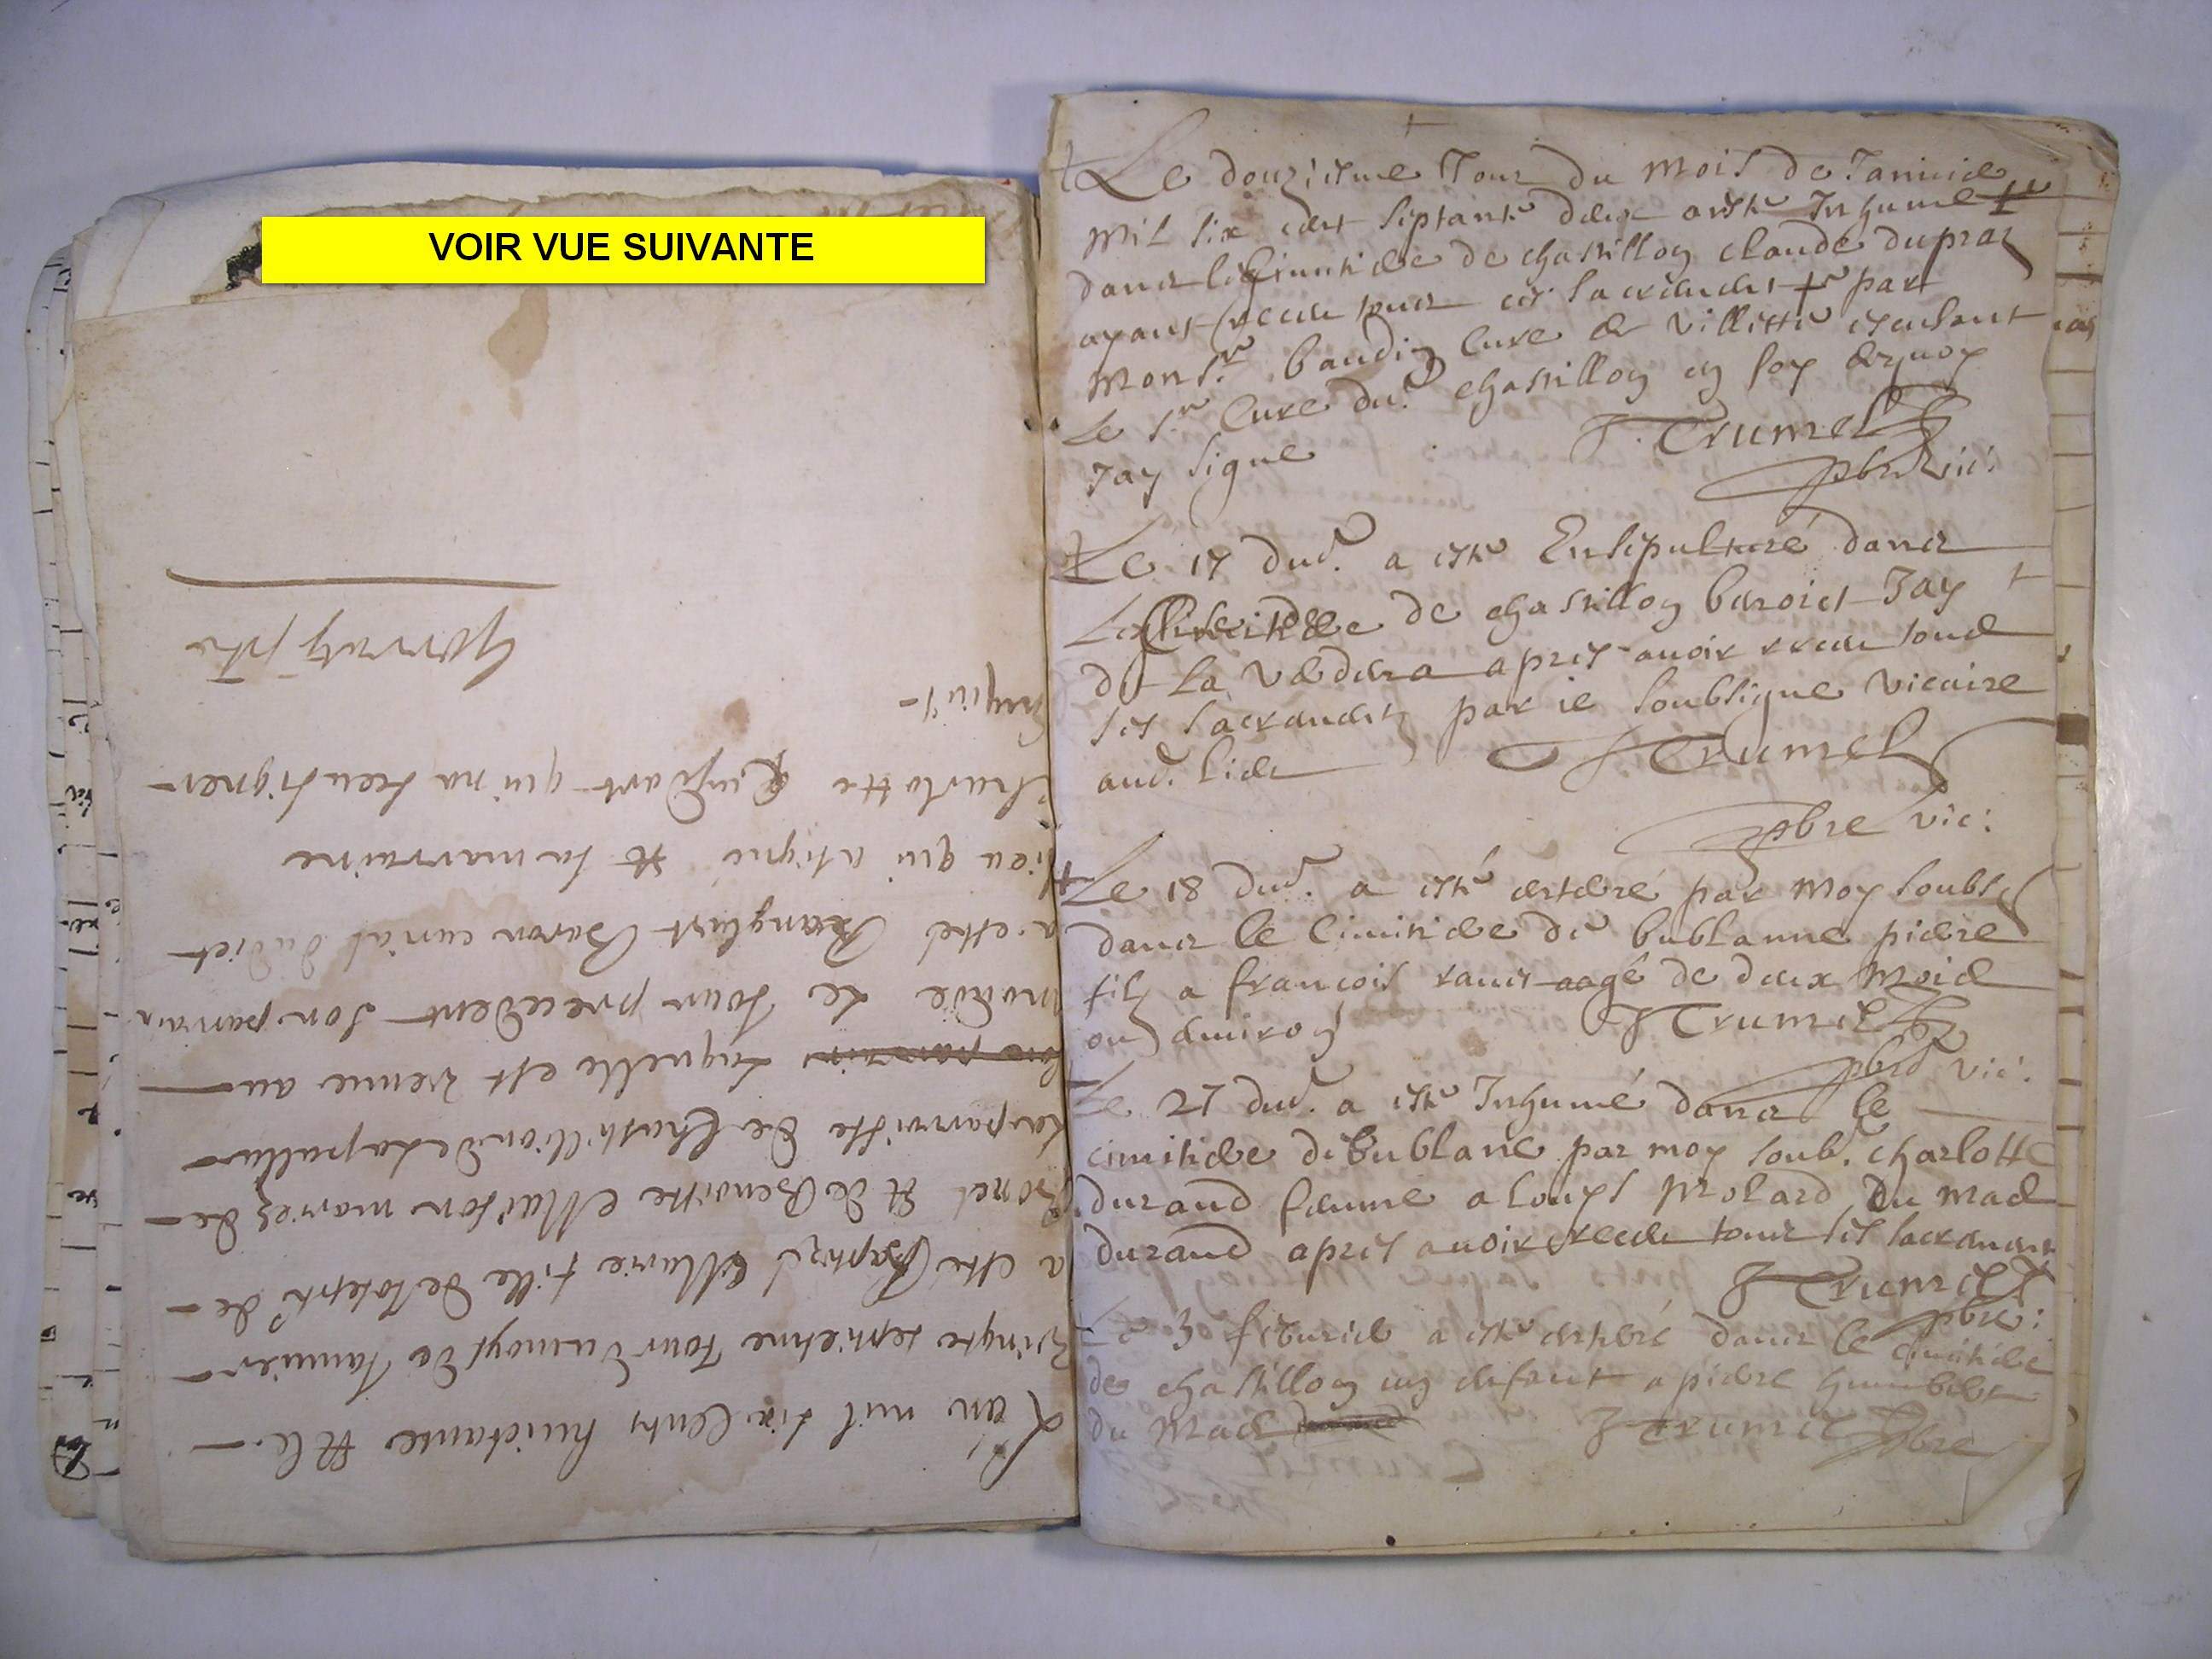 VOIR VUE SUIVANTE
L'an mil six Cents huictante Et le
Vingte septiesme Jour du moys de Januier
a esté Baptizé Marie fille de Joseph de
et de Benoitte mariez de
la parroisse de Chastillion de La pallu
son parrain laquelle est venue au
monde Le Jour precedent Son parrain
a esté Baron curial dudict
lieu qui a signé et la marraine
Charlotte qui na sceu signer
requise
ptre
Le douziesme Jour du mois de Januier
mil six cent septante deux a esté Inhumé
dans le Cimitiere de chastillon claude dupraz
ayant receu tous ses sacrements par
Mons.r baudin Cure de Villette absent
Le S.r Cure dud. chastillon en foy dequoy
Jay signe
J. Trumel
pbre vic:
Le 17 dud. a esté Ensepulturé dans
Le Cimitiere de chastillon benoict Jay
de la apres auoir receu tous
ses sacrements par ie soubsigne vicaire
aud. lieu
J Trumel
pbre vic:
Le 18 dud. a esté enterré par moy soubs
dans le Cimitiere de bublanne pierre
filz a francois aagé de deux mois
ou enuiron
J Trumel
pbre vic:
Le 27 dud. a esté Inhumé dans le
cimitiere de bublane par moy soub. charlotte
durand femme a Louys Molard du Mas
durand apres auoir receu tous ses sacremens
J Trumel
pbre:
Le 3 feburier a esté enterré dans le cimitiere
de chastillon un enfant a pierre humbert
du Mas
J Trumel pbre